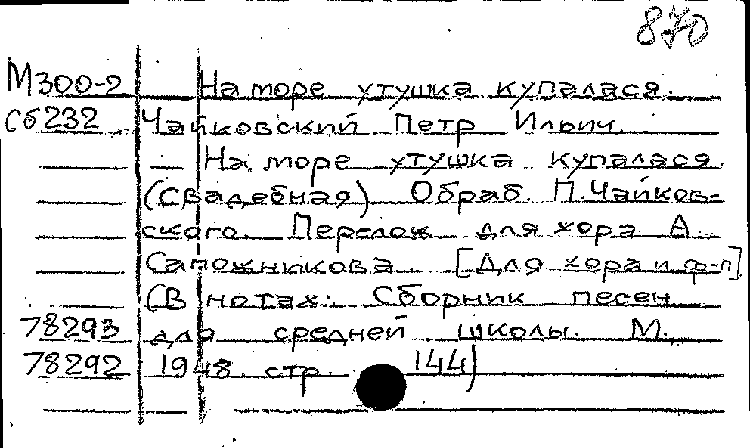 870
М300-2 На море утушка купалася.
Сб232 Чайковский Петр Ильич.
На море утушка купалася.
(Свадебная) Обраб. П.Чайков-
ского. Перелож. для хора А.
Сапожникова. [Для хора и ф-п]
(В нотах: Сборник песен
78293 для средней школы. М.,
78292 1948. стр. 144)